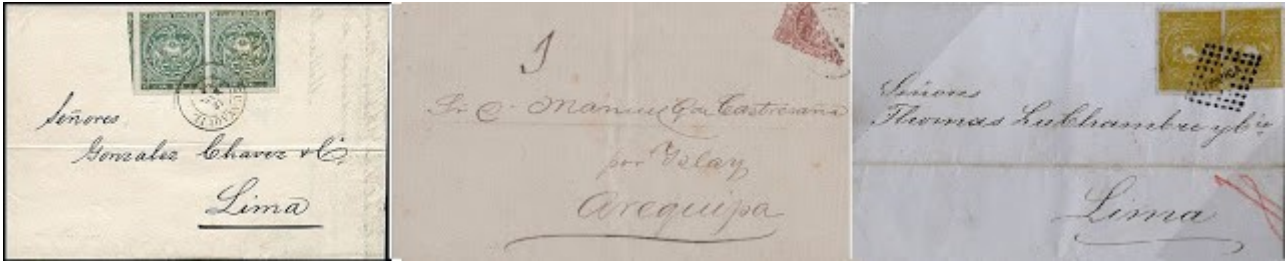 Señores
Gonzalez Chavez & Cª
Lima
1
Manuel G. de Castresana
por Islay
Arequipa
Señores
Thomas LaChambre y Cia
Lima